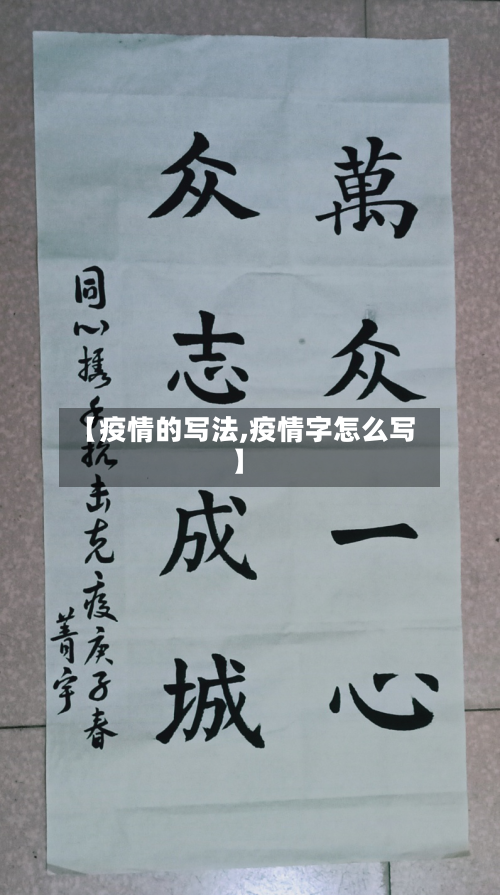 萬众一心
众志成城
同心携手抗击克疫庚子春
菁宇
【疫情的写法,疫情字怎么写
】